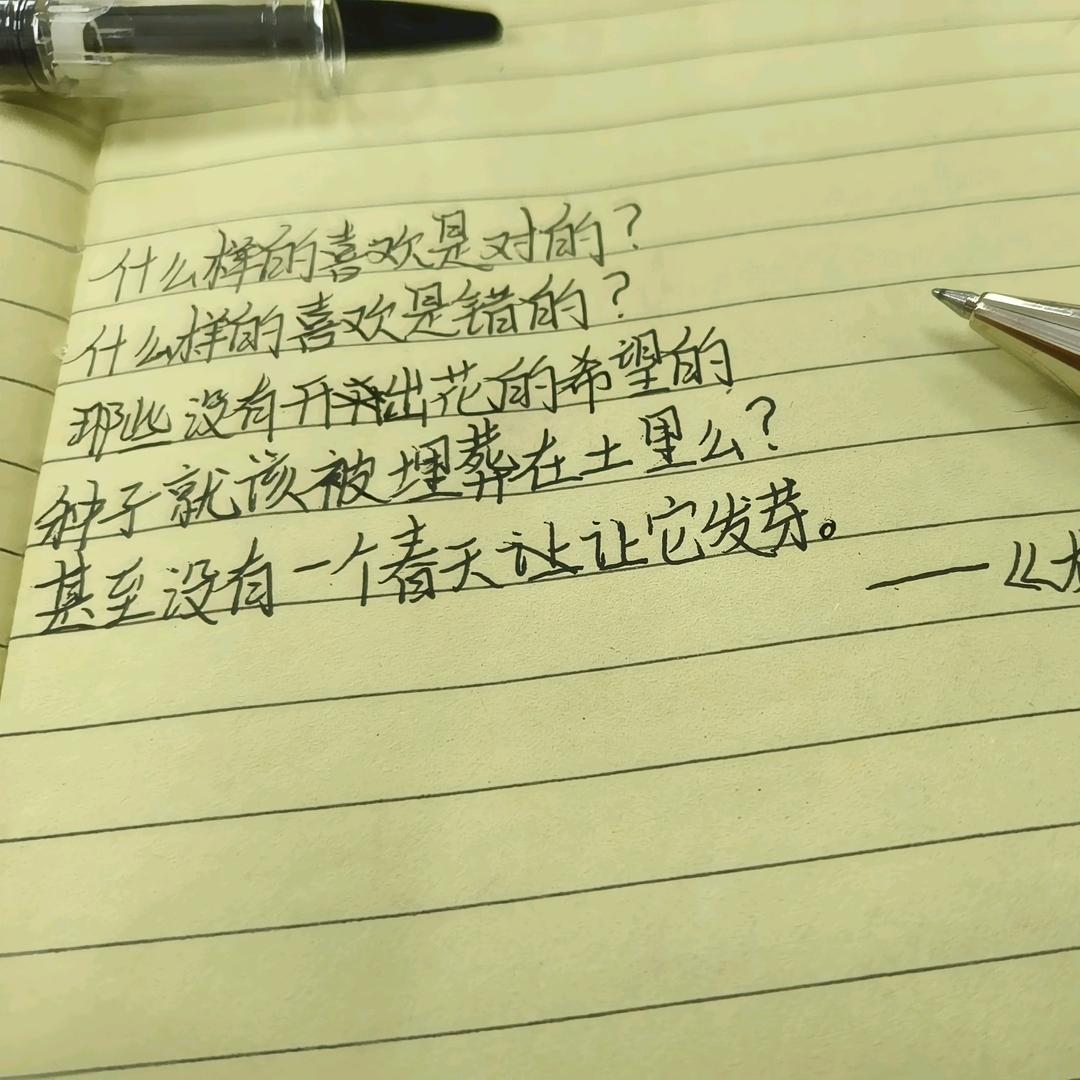 什么样的喜欢是对的？
什么样的喜欢是错的？
那些没有开出花的希望的
种子就该被埋葬在土里么？
甚至没有一个春天让让它发芽。
——《